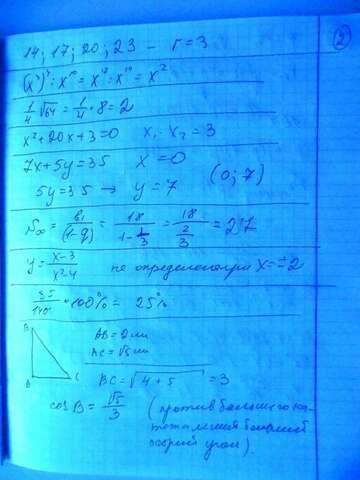 2
14; 17; 20; 23 – r=3
1/4 √64 = 1/4 · 8 = 2
x²+20x+3=0 x₁ · x₂ = 3
7x+5y=35 x=0
5y=35 → y=7 (0; 7)
S∞ = b₁/(1-q) = 18/(1-1/3) = 18/(2/3) = 27
y = x-3/x²-4 не определена при x=±2
35/140 · 100% = 25%
AB=2см
AC=√5см
B
C
BC=√4+5 = 3
cos B = √5/3 (против большего ка-
тета лежит больший
острый угол).